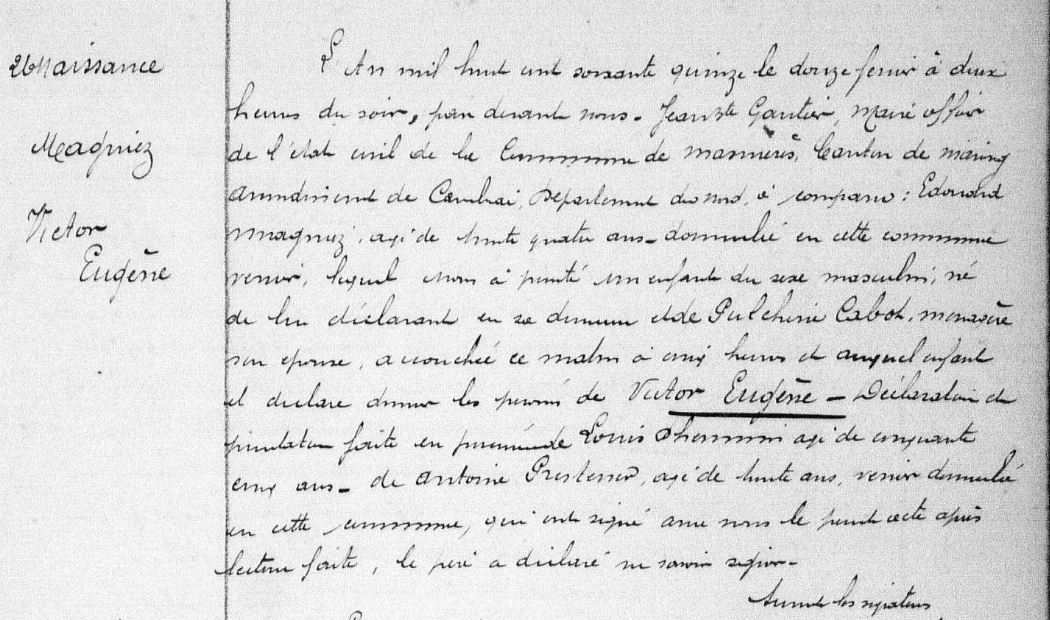 26 Naissance
Magniez
Victor
Eugène
L'An mil huit cent soixante quinze le douze février à deux
heures du soir, par devant nous - Jean Bte Gautier, Maire officier
de l'état civil de la Commune de Masnières, Canton de Marcoing
Arrondissement de Cambrai, Département du nord, a comparu : Edouard
Magniez, agé de trente quatre ans - domicilié en cette commune
lequel nous a présenté un enfant du sexe masculin, né
de lui déclarant en sa demeure et de Pulchérie Cabot, ménagère
son épouse, accouchée ce matin à cinq heures et auquel enfant
il déclare donner les prénoms de Victor Eugène - Déclaration et
présentation faite en présence de Louis agé de cinquante
cinq ans - de Antoine agé de trente ans, domicilié
en cette commune, qui ont signé avec nous le présent acte après
lecture faite, le père a déclaré ne savoir signer -
Suivent les signatures